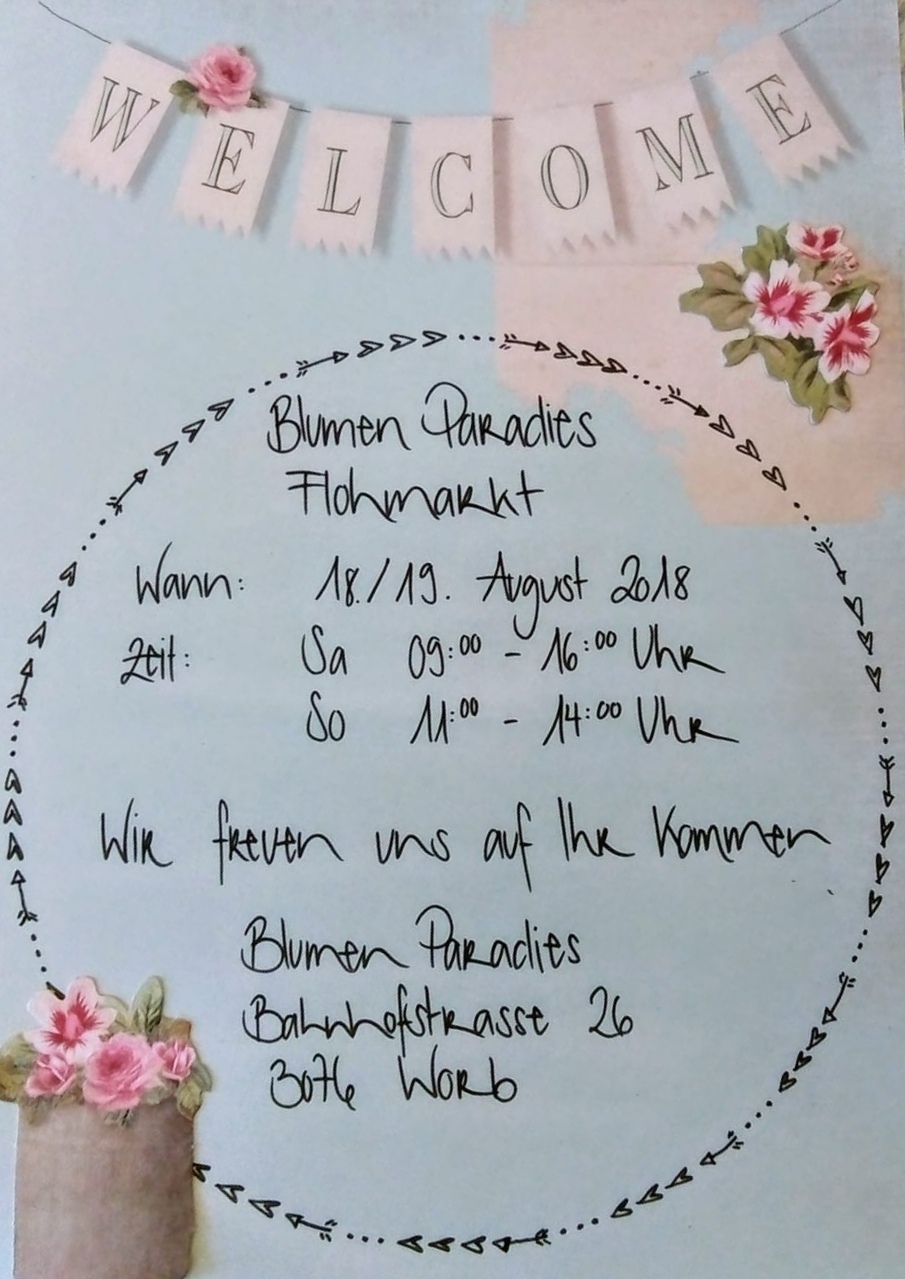 WELCOME
Blumen Paradies
Flohmarkt
Wann: 18./19. August 2018
Zeit: Sa 09:00 - 16:00 Uhr
So 11:00 - 14:00 Uhr
Wir freuen uns auf Ihr Kommen
Blumen Paradies
Bahnhofstrasse 26
3076 Worb